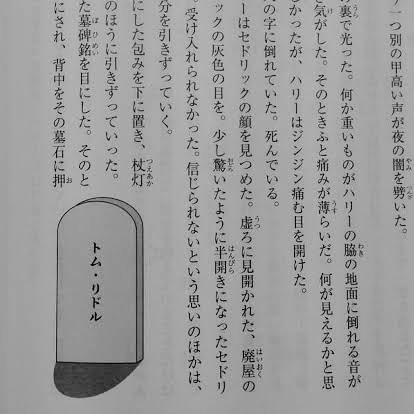 一つ別の甲高い声が夜の闇を劈いた。
裏で光った。何か重いものがハリーの脇の地面に倒れる音が
気がした。そのときふと痛みが薄らいだ。何が見えるかと思
しかったが、ハリーはジンジン痛む目を開けた。
の字に倒れていた。死んでいる。
ーはセドリックの顔を見つめた。虚ろに見開かれた、廃屋の
ックの灰色の目を。少し驚いたように半開きになったセドリ
受け入れられなかった。信じられないという思いのほかは、
分を引きずっていく。
にした包みを下に置き、杖灯
のほうに引きずっていった。
た墓碑銘を目にした。そのと
にされ、背中をその墓石に押
トム・リドル